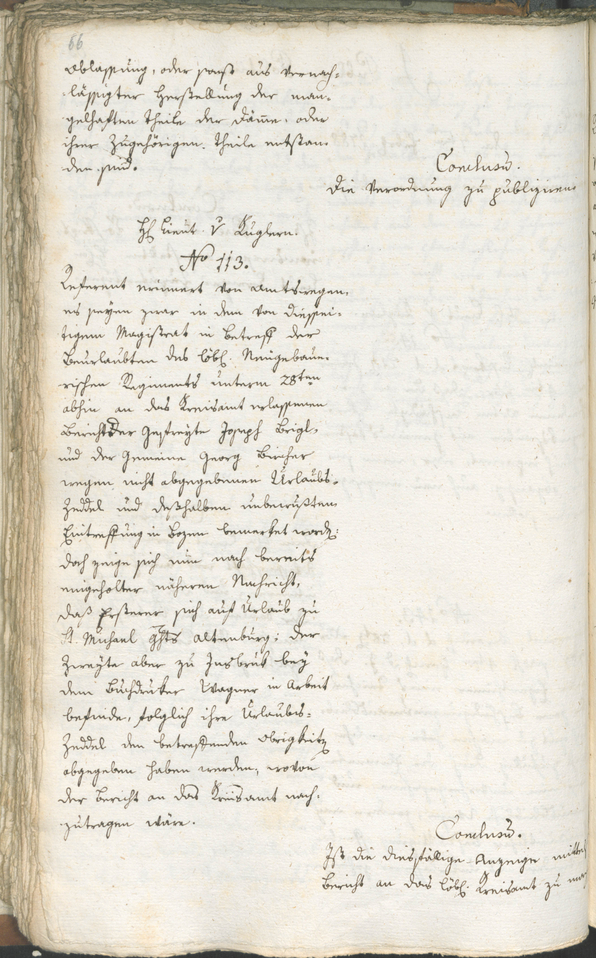 66
ablassung, oder sonst aus vernach-
lässigter Herstellung der man-
gelhaften Theile der Däm̄e, oder
ihrer zugehörigen Theile entstan-
den sind.
Conclusū.
Die Verordnung zu publiziren
H: Lieut. v Kuglern.
No 113.
Referent erinnert von Amtswegen,
es seyen zwar in dem von diessei-
tigem Magistrat in Betreff der
Beurlaubten des löbl. Neugebaue-
rischen Regiments unterm 28ten
abhin an das Kreisamt erlassenen
Bericht der Gefreyte Joseph Brigl,
und der Gemeine Georg Bircher
wegen nicht abgegebenen Urlaubs-
Zeddel und desshalben unbewussten
Eintreffung in Bozen bemerket word:
doch zeige sich nun nach bereits
eingeholter näheren Nachricht,
dass Ersterer sich auf Urlaub zu
St. Michael Ghts Altenburg: der
Zweyte aber zu Insbruk bey
dem Buchdruker Wagner in Arbeit
befinde, folglich ihre Urlaubs-
Zeddel den betreffenden Obrigkeit
abgegeben haben werden, wovon
der Bericht an das Kreisamt nach-
zutragen wäre.
Conclusū.
Ist die diesfällige Anzeige mittels
Bericht an das löbl. Kreisamt zu